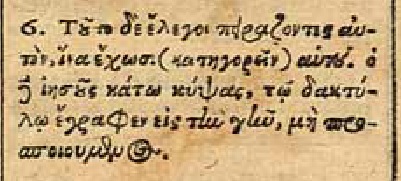 6. Τοῦτο δὲ ἔλεγον πειράζοντες αὐ-
τὸν, ἵνα ἔχωσι (κατηγορεῖν) αὐτοῦ. ὁ
δὲ ἰησοῦς κάτω κύψας, τῷ δακτύ-
λῳ ἔγραφεν εἰς τὴν γῆν, μὴ προ-
σποιούμενος.